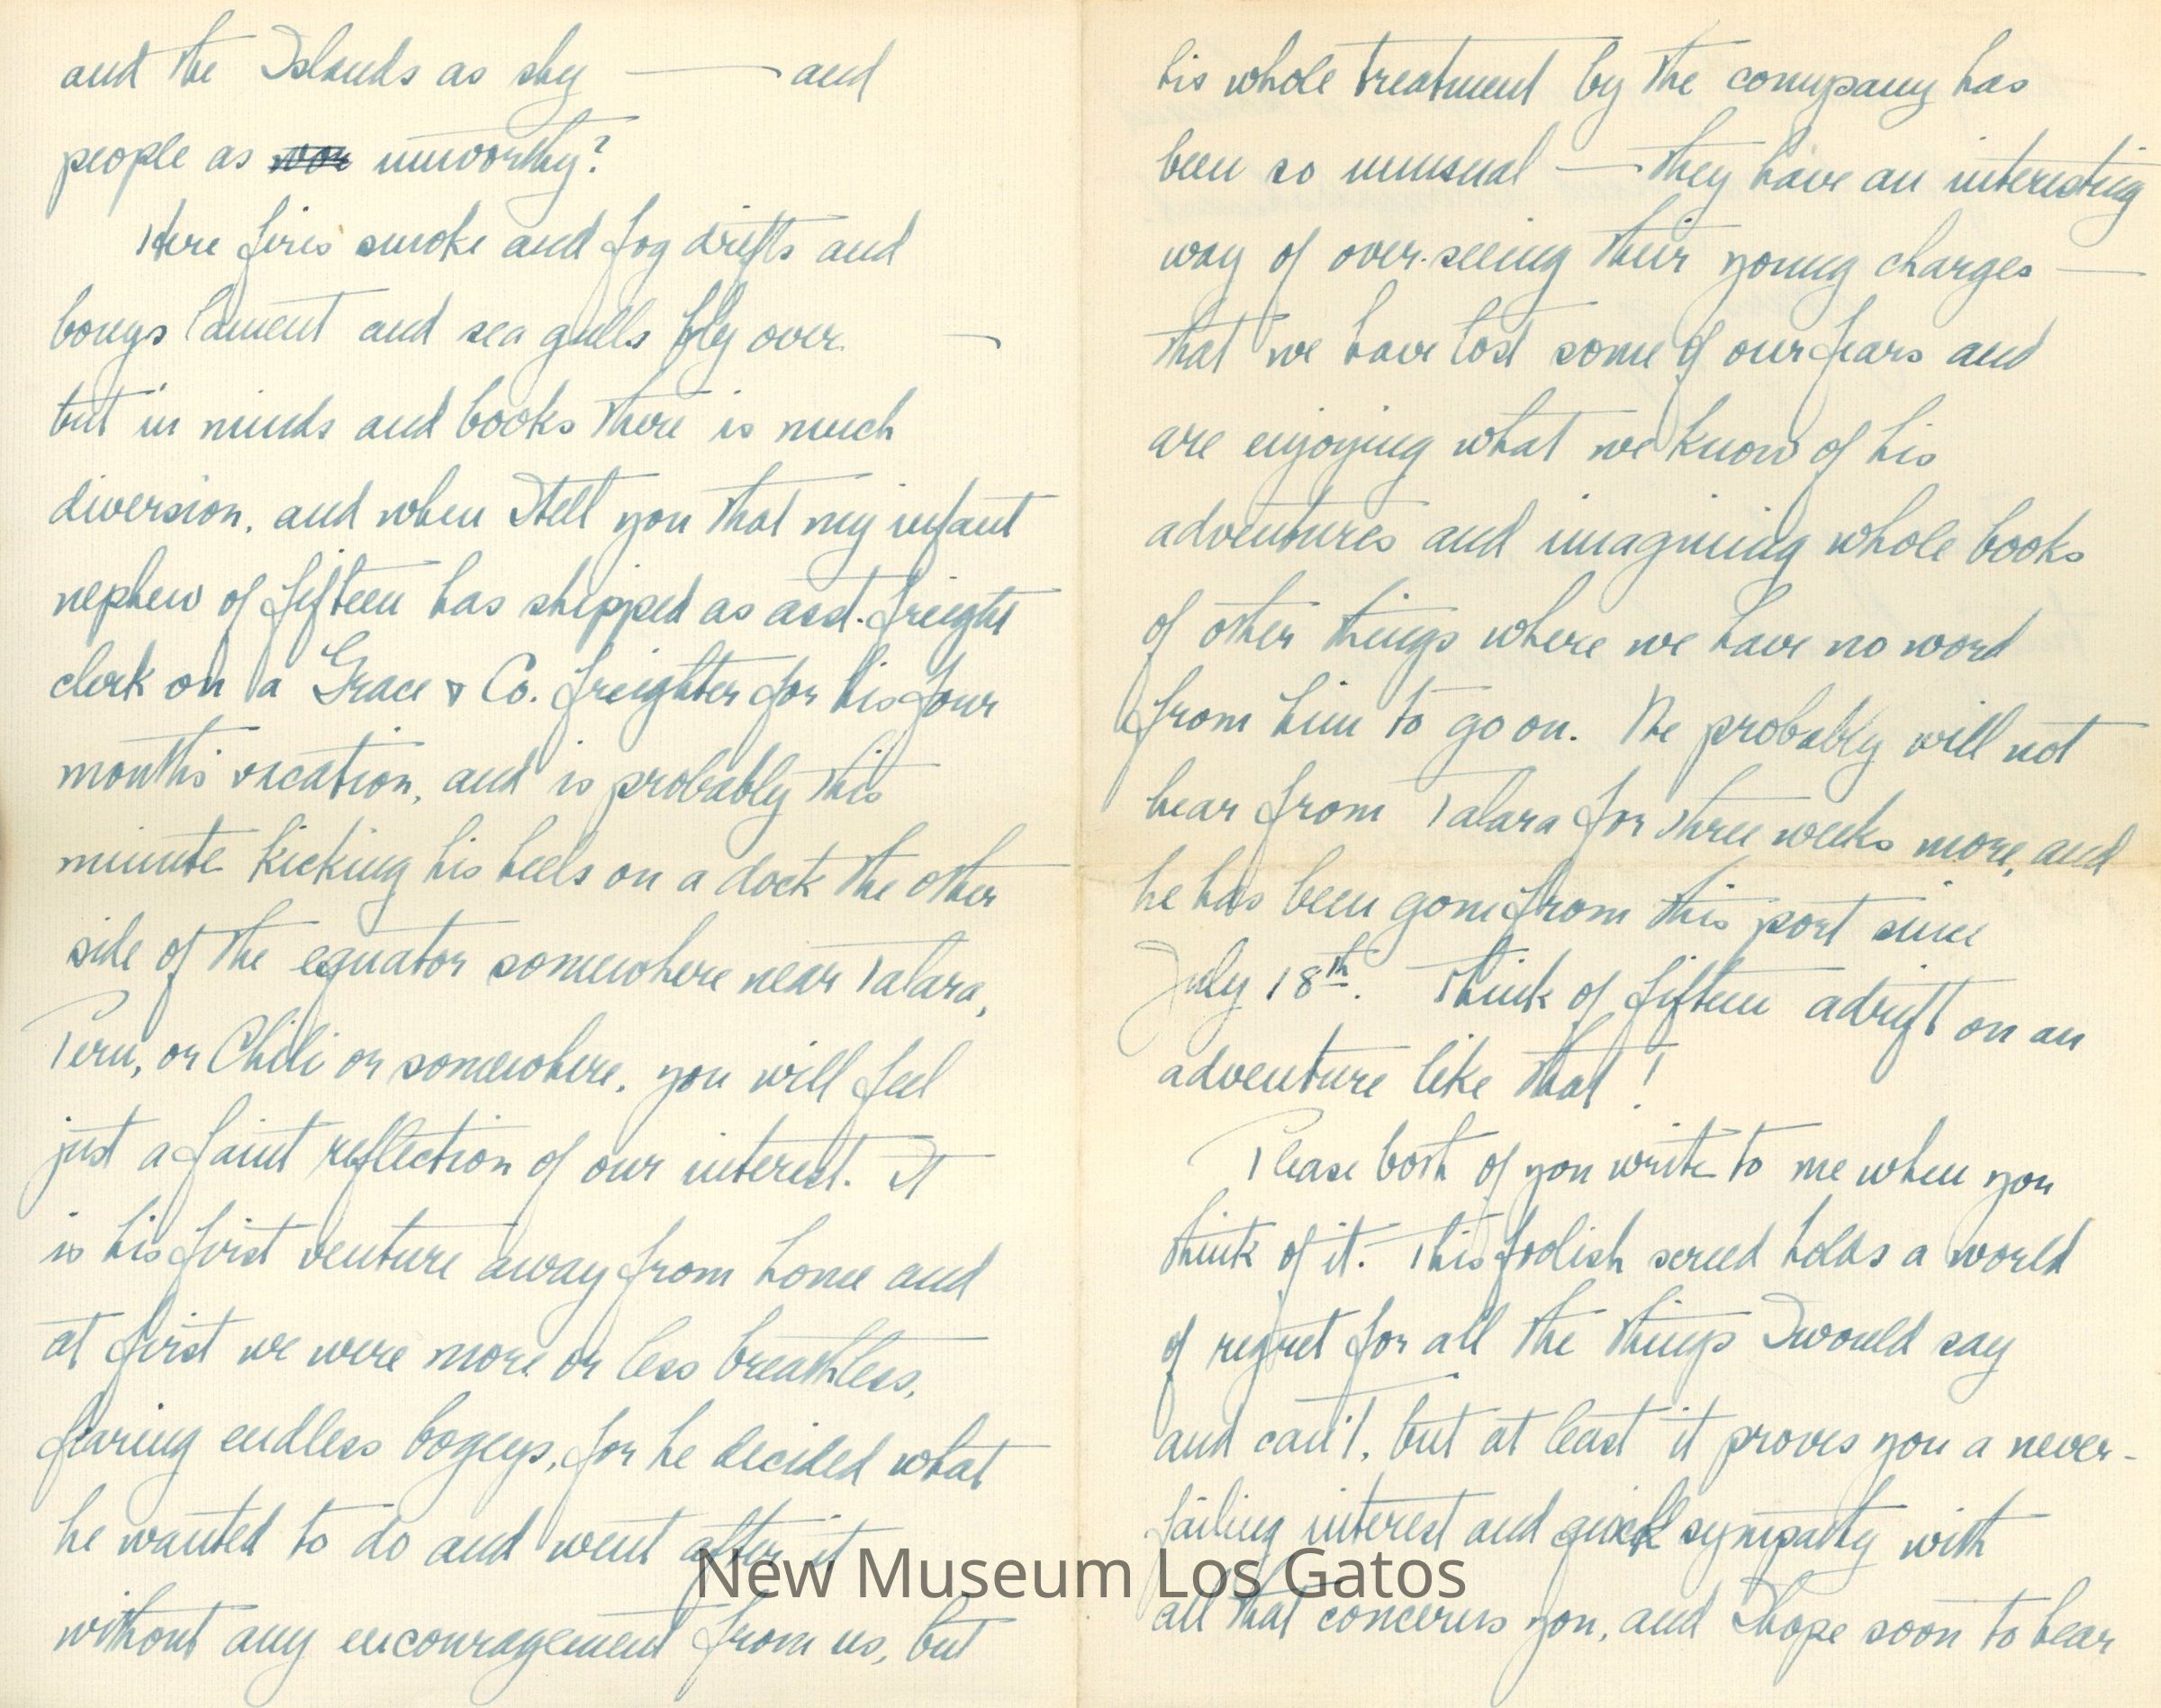 and the Islands as shy — and
people as unworthy?
Here fires smoke and fog drifts and
bouys lament and sea gulls fly over —
but in minds and books there is much
diversion, and when I tell you that my infant
nephew of fifteen has shipped as asst. freight
clerk on a Grace & Co. freighter for his four
months' vacation, and is probably this
minute kicking his heels on a dock the other
side of the equator somewhere near Talara,
Peru, or Chili or somewhere, you will feel
just a faint reflection of our interest. It
is his first venture away from home and
at first we were more or less breathless,
fearing endless bogeys, for he decided what
he wanted to do and went after it
without any encouragement from us, but
his whole treatment by the company has
been so unusual — they have an interesting
way of over-seeing their young charges —
that we have lost some of our fears and
are enjoying what we know of his
adventures and imagining whole books
of other things where we have no word
from him to go on. We probably will not
hear from Talara for three weeks more, and
he has been gone from this port since
July 18th. Think of fifteen adrift on an
adventure like that!
Please both of you write to me when you
think of it. This foolish screed holds a world
of regret for all the things I would say
and can't, but at least it proves you a never-
failing interest and quick sympathy with
all that concerns you, and I hope soon to hear
New Museum Los Gatos